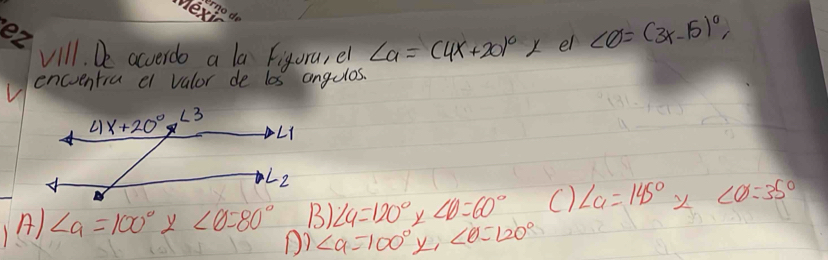 México
erno de
rez
VIII. De acuerdo a la figura, el ∠a = (4x+20)° y el ∠θ = (3x-15)°,
encuentra el valor de los angulos.
4x+20° L3
L1
L2
A) ∠a = 100° y ∠θ=80° B) ∠a=120° y ∠θ=60° C) ∠a = 145° y ∠θ=35°
D) ∠a=100° y, ∠θ=120°